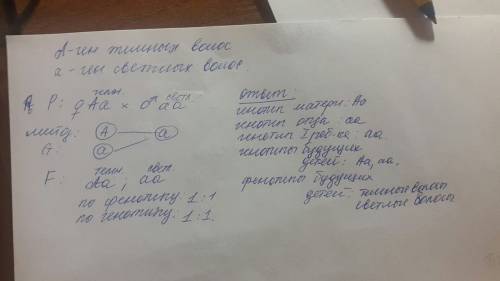 А-ген темных волос
а-ген светлых волос.
темн. светл.
P: ♀ Аа × ♂ аа
мейоз:
G:
А
а
а
темн. светл.
F: Аа; аа
по фенотипу: 1:1
по генотипу: 1:1.
Ответ:
генотип матери: Аа
генотип отца: аа
генотип I реб-ка: аа.
генотипы будущих
детей: Аа, аа.
фенотипы будущих
детей: темные волосы
светлые волосы